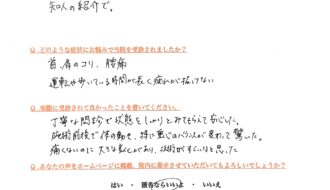 知人の紹介で。
Q.どのような症状にお悩みで当院を受診されましたか？
首、肩のコリ、腰痛
運転や歩いている時間が長く疲れが抜けない
Q.実際に受診されて良かったことを書いてください。
丁寧な問診で状態をしっかりとみてもらえて安心した。
施術前後で体の動き、特に重心のバランスが変わって驚いた。
痛くないのに大きな変化があり、技術がすごいなと思った
Q.あなたの声をホームページに掲載、院内に掲示させていただいてもよろしいでしょうか？
はい ・ 匿名ならいいよ ・ いいえ